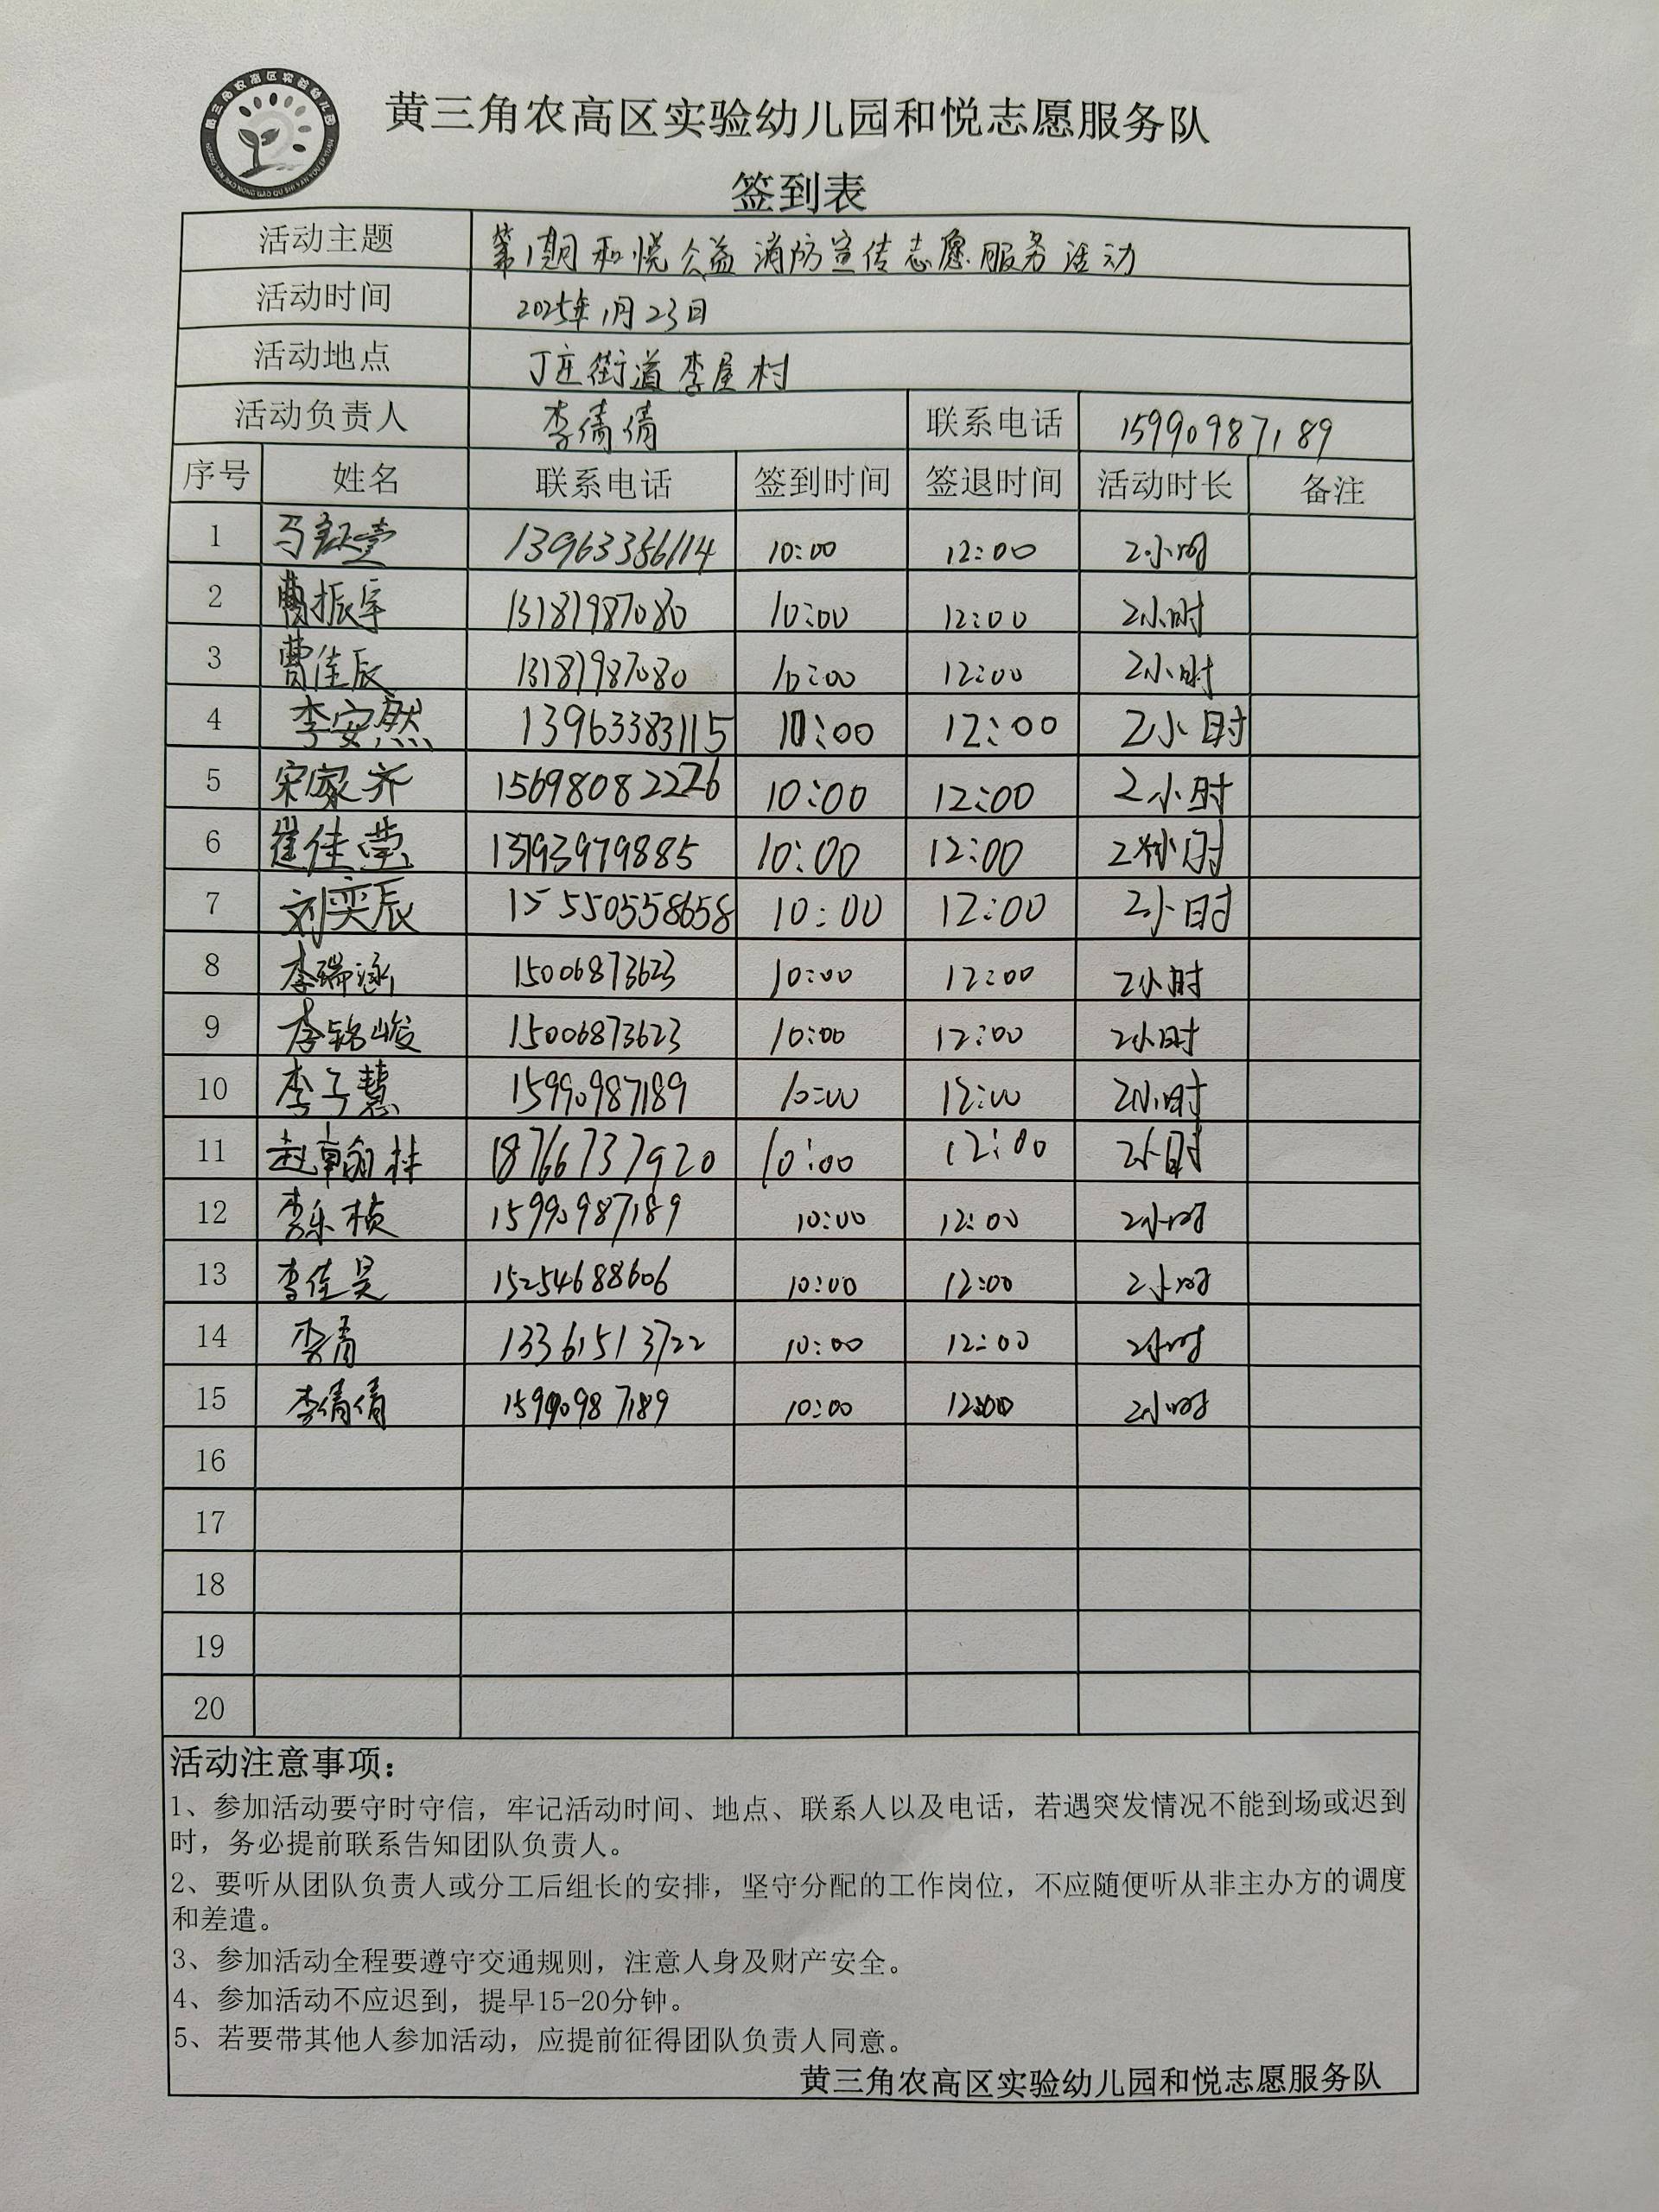 黄三角农高区实验幼儿园
HUANG SAN JIAO NONG GAO QU SHI YAN YOU ER YUAN
黄三角农高区实验幼儿园和悦志愿服务队
签到表
活动主题 第1期和悦公益消防宣传志愿服务活动
活动时间 2025年1月23日
活动地点 丁庄街道李屋村
活动负责人 李倩倩 联系电话 15990987189
序号 姓名 联系电话 签到时间 签退时间 活动时长 备注
1 13963356114 10:00 12:00 2小时
2 曹振宇 13181987080 10:00 12:00 2小时
3 曹佳辰 13181987080 10:00 12:00 2小时
4 李安然 13963383115 10:00 12:00 2小时
5 宋家齐 15698082226 10:00 12:00 2小时
6 崔佳莹 13793979885 10:00 12:00 2小时
7 刘奕辰 15550558658 10:00 12:00 2小时
8 李瑞涵 15006873623 10:00 12:00 2小时
9 李铭峻 15006873623 10:00 12:00 2小时
10 李子慧 15990987189 10:00 12:00 2小时
11 赵翰林 18766737920 10:00 12:00 2小时
12 李乐桢 15990987189 10:00 12:00 2小时
13 李佳昊 15254688606 10:00 12:00 2小时
14 李青 13361513722 10:00 12:00 2小时
15 李倩倩 15990987189 10:00 12:00 2小时
16
17
18
19
20
活动注意事项：
1、参加活动要守时守信，牢记活动时间、地点、联系人以及电话，若遇突发情况不能到场或迟到
时，务必提前联系告知团队负责人。
2、要听从团队负责人或分工后组长的安排，坚守分配的工作岗位，不应随便听从非主办方的调度
和差遣。
3、参加活动全程要遵守交通规则，注意人身及财产安全。
4、参加活动不应迟到，提早15-20分钟。
5、若要带其他人参加活动，应提前征得团队负责人同意。
黄三角农高区实验幼儿园和悦志愿服务队